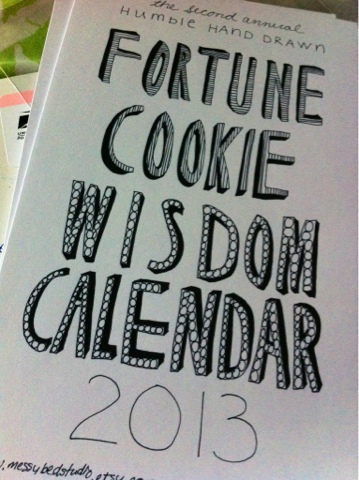 the second annual
HUMBLE HAND DRAWN
FORTUNE
COOKIE
WISDOM
CALENDAR
2013
.messybedstudio.etsy.